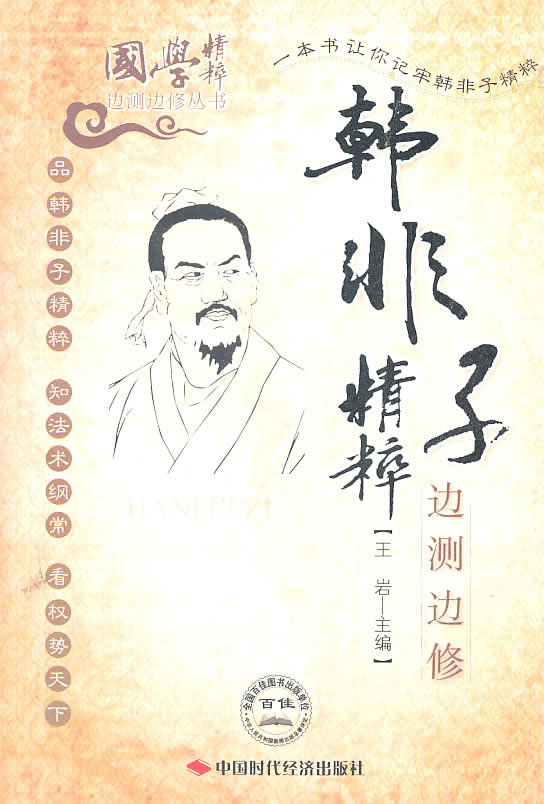 國學精粹
边测边修丛书
一本书让你记牢韩非子精粹
韩非子
精粹
边测边修
【王 岩—主编】
品韩非子精粹 知法术纲常 看权势天下
HANFEIZI
全国百佳图书出版单位
百佳
中国时代经济出版社